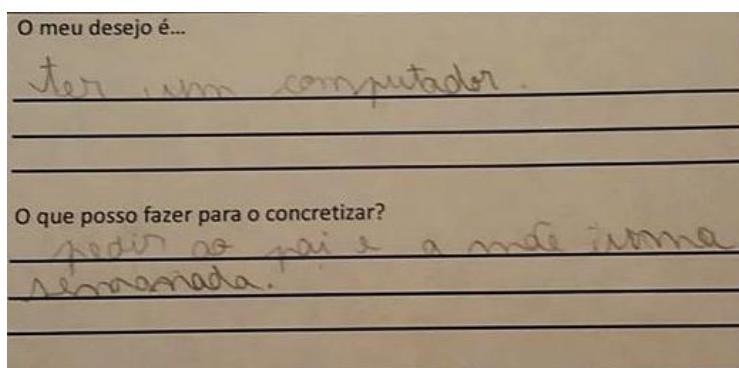 O meu desejo é...
ter um computador.
O que posso fazer para o concretizar?
pedir ao pai e a mãe
semanada.